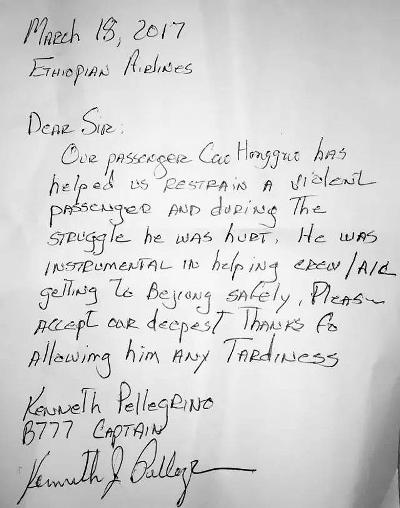 March 18, 2017
Ethiopian Airlines
Dear Sir:
Our passenger Cao Honggruo has
helped us restrain a violent
passenger and during the
struggle he was hurt. He was
instrumental in helping crew/A/C
getting to Bejiong safely, Please
accept our deepest thanks fo
allowing him any tardiness
Kenneth Pellegrino
B777 Captain
Kenneth J Pelleg